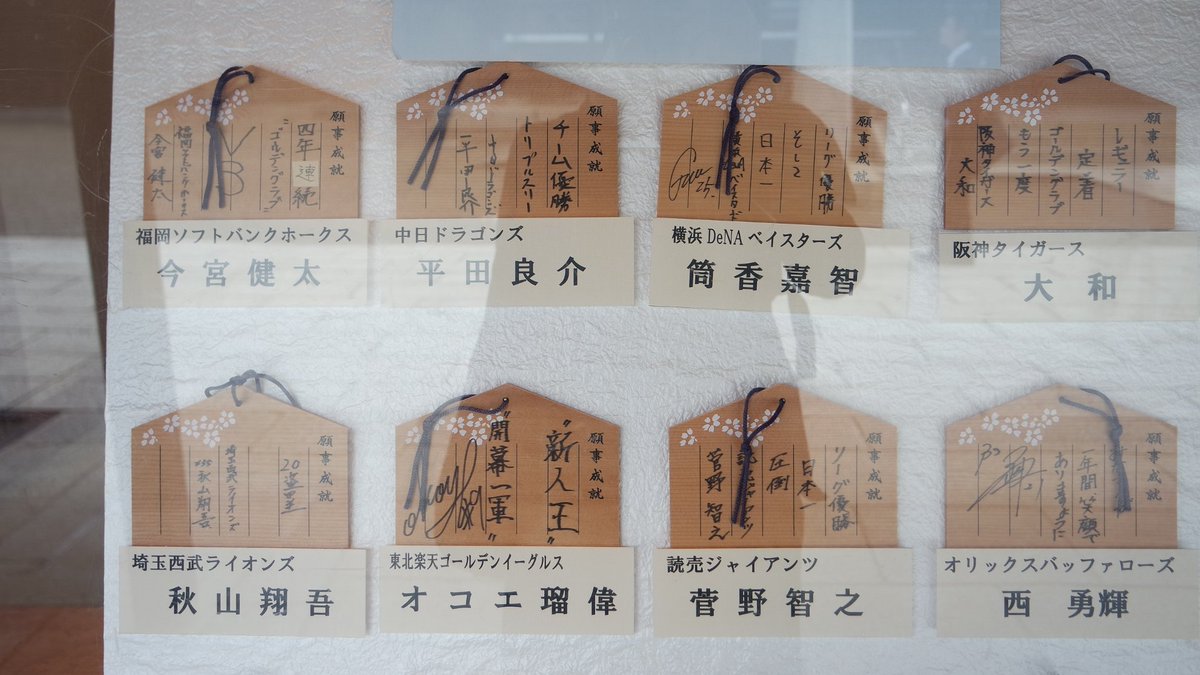 願事成就
四年連続
ゴールデングラブ
V3
福岡ソフトバンクホークス
今宮健太
福岡ソフトバンクホークス
今宮健太
願事成就
チーム優勝
トリプルスリー
中日ドラゴンズ
平田良介
中日ドラゴンズ
平田良介
願事成就
リーグ優勝
そして
日本一
横浜DeNAベイスターズ
横浜DeNAベイスターズ
筒香嘉智
願事成就
レギュラー
定着
ゴールデングラブ
もう一度
阪神タイガース
大和
阪神タイガース
大和
願事成就
20盗塁
埼玉西武ライオンズ
秋山翔吾
埼玉西武ライオンズ
秋山翔吾
願事成就
"新人王"
"開幕一軍"
東北楽天ゴールデンイーグルス
オコエ瑠偉
願事成就
リーグ優勝
日本一
圧倒
菅野智之
読売ジャイアンツ
菅野智之
願事成就
一年間笑顔で
ありますように
オリックスバッファローズ
西勇輝